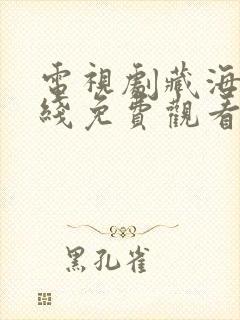 電視劇藏海
綫免費觀看
黑孔雀